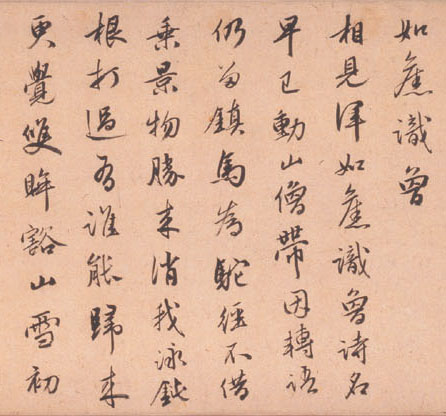 如舊識曾
相見渾如舊識曾詩名
早已動山僧帶因轉語
仍留鎮馬為駝經不借
乘景物勝來消我詠鈍
根打過有誰能歸來
更覺雙眸豁山雪初